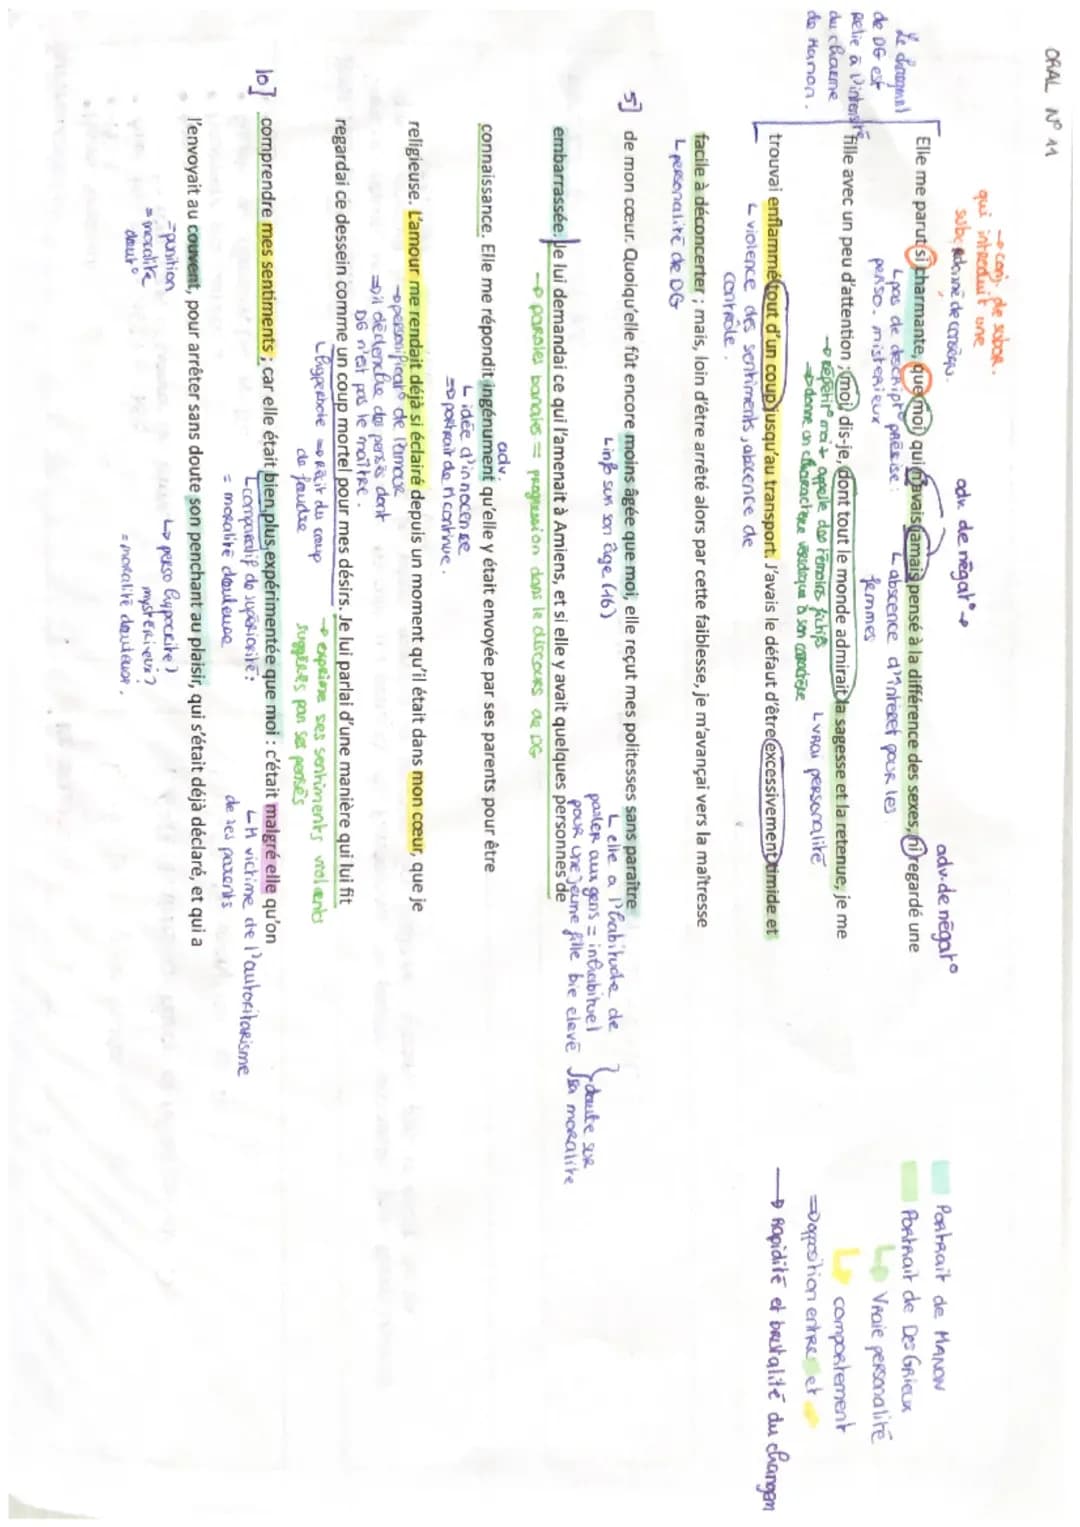 ORAL N° 11
→ conj. de subor.
qui introduit une
adv. de négat° →
adv. de négat°
Portrait de MANON
Elle me parut si charmante, que moi, qui n'avais jamais pensé à la différence des sexes, ni regardé une
Portrait de Des Grieux
↳ Vraie personalité
Le changmt
de DG est
relié à l'intensité
du charme
de Manon.
↳ pas de descript° précise :
perso. misterieux
↳ absence d'intéret pour les
femmes
↳ comportement
fille avec un peu d'attention ; moi, dis-je, dont tout le monde admirait la sagesse et la retenue, je me
→ répétit° moi + appelle des
→ donne un charactere véridique à son caractère
↳ vrai personalité
⇒ opposition entre et
trouvai enflammé tout d'un coup jusqu'au transport. J'avais le défaut d'être excessivement timide et
→ Rapidité et brutalité du changem
↳ violence des sentiments, absence de
contrôle.
facile à déconcerter ; mais, loin d'être arrêté alors par cette faiblesse, je m'avançai vers la maîtresse
↳ personalité de DG
5] de mon cœur. Quoiqu'elle fût encore moins âgée que moi, elle reçut mes politesses sans paraître
↳ inf° sur son âge (16)
↳ elle a l'habitude de
parler aux gens = inhabituel
pour une jeune fille bie elevé
doute sur
sa moralité
embarrassée. Je lui demandai ce qui l'amenait à Amiens, et si elle y avait quelques personnes de
→ paroles banales = progression dans le discours de DG
connaissance. Elle me répondit ingénument qu'elle y était envoyée par ses parents pour être
adv.
↳ idée d'innocence
⇒ portrait de M continue.
religieuse. L'amour me rendait déjà si éclairé depuis un moment qu'il était dans mon cœur, que je
→ personificat° de l'amour
⇒ il déclenche des pensés dont
DG n'est pas le maître.
regardai ce dessein comme un coup mortel pour mes désirs. Je lui parlai d'une manière qui lui fit
↳ hyperbole ⇒ récit du coup
de foudre
→ exprime ses sentiments violents
suggérés par ses pensés
10] comprendre mes sentiments ; car elle était bien plus expérimentée que moi : c'était malgré elle qu'on
↳ comparatif de supériorité :
= moralité douteuse
↳ M victime de l'autoritarisme
de ses parents
l'envoyait au couvent, pour arrêter sans doute son penchant au plaisir, qui s'était déjà déclaré, et qui a
= punition
= moralité
dout°
↳ perso hypocrite)
mystérieux ?
= moralité douteuse.